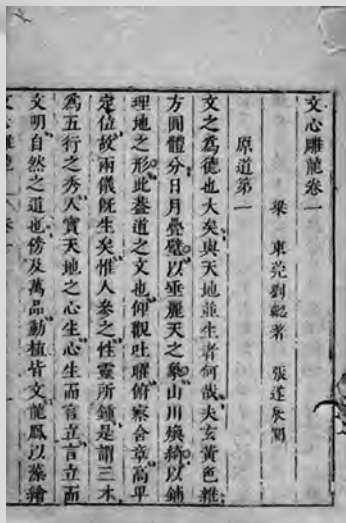 文心雕龍卷一
梁 東莞劉勰著 張遂辰閱
原道第一
文之為德也大矣與天地並生者何哉夫玄黃色雜
方圓體分日月疊璧以垂麗天之象山川煥綺以鋪
理地之形此葢道之文也仰觀吐曜俯察含章高卑
定位故兩儀旣生矣惟人參之性靈所鍾是謂三才
為五行之秀人實天地之心生心生而言立言立而
文明自然之道也傍及萬品動植皆文龍鳳以藻繪
文心雕龍 卷一